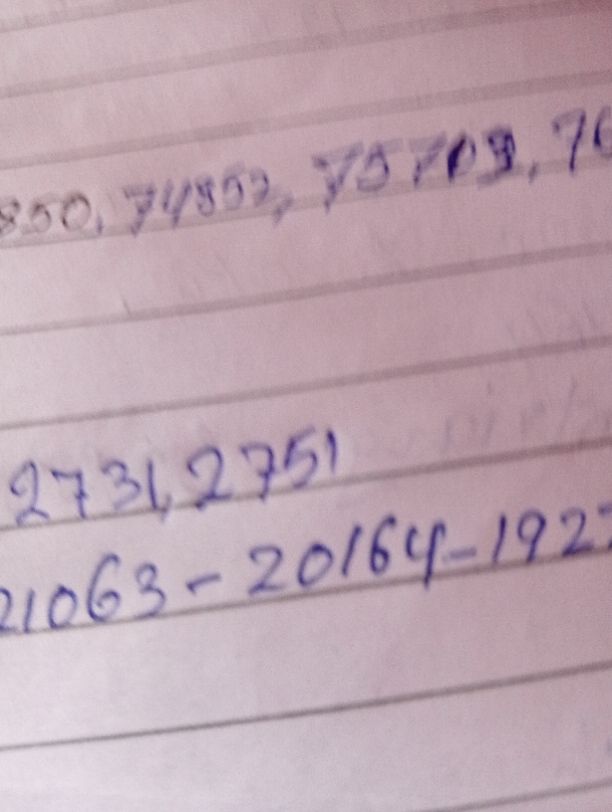 850, 74852, 75703, 76
2731, 2751
21063 - 20164 - 192